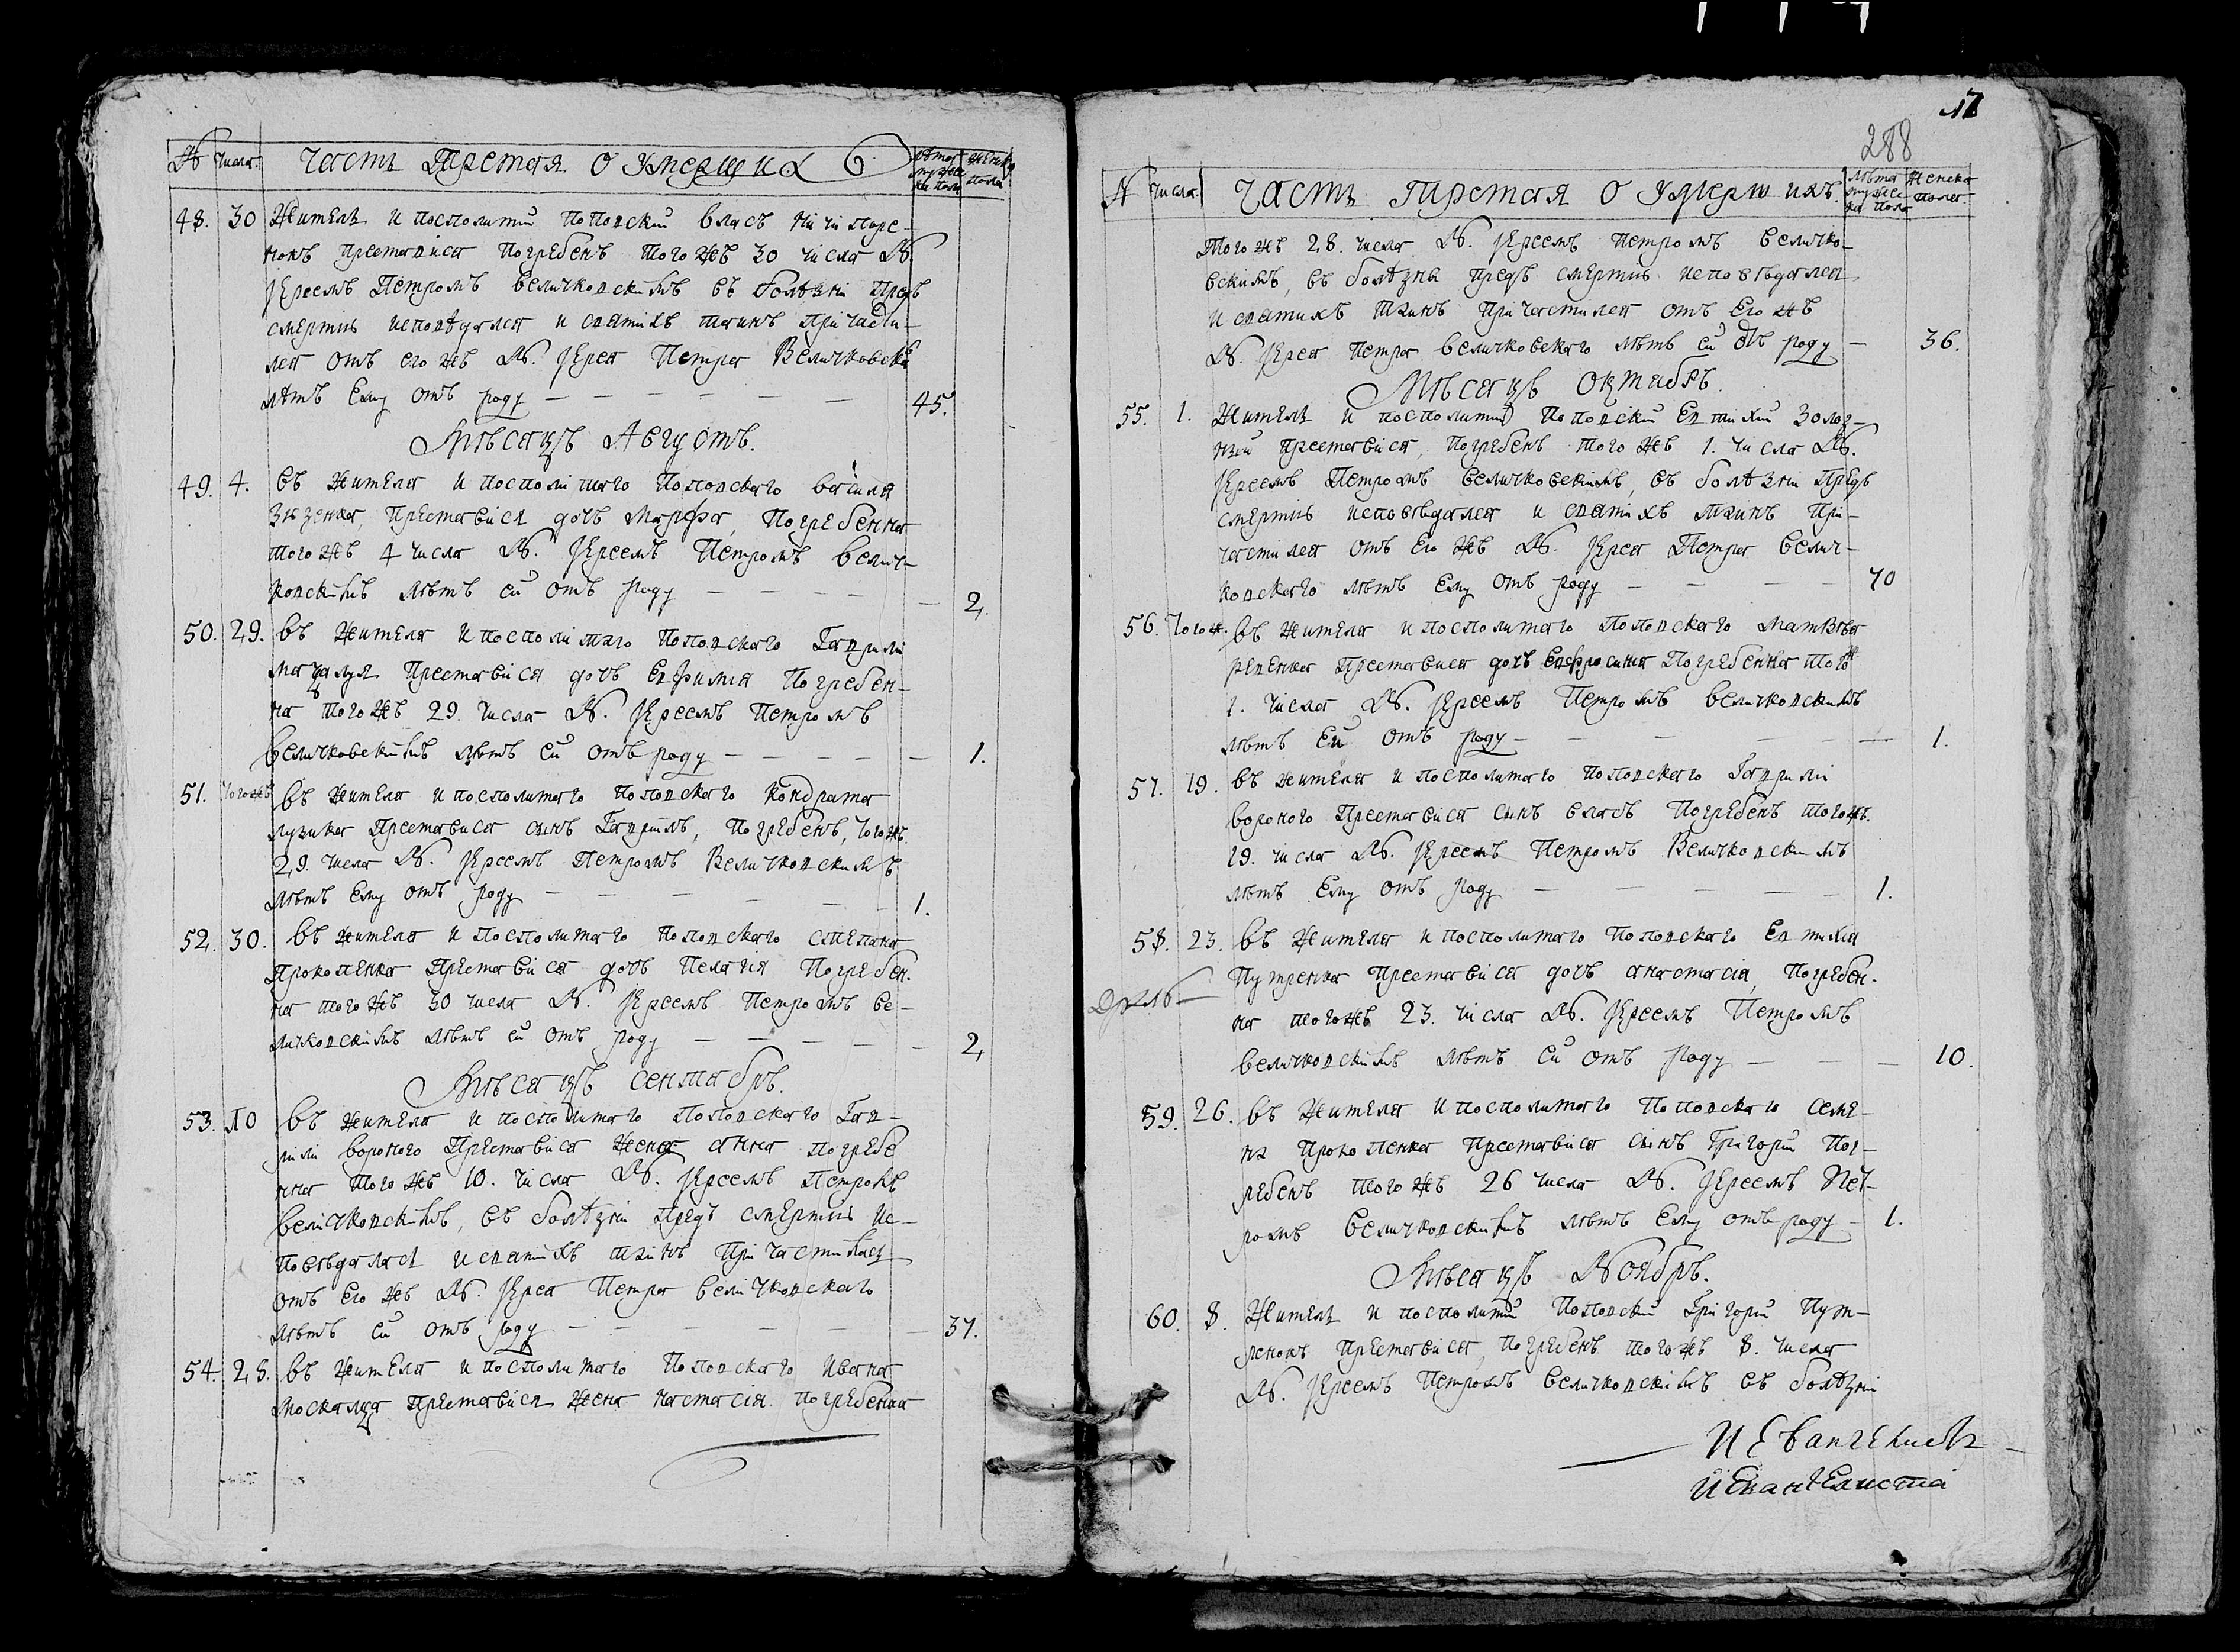 № числа. Часть третая о умерших Лѣта мужеска пола женска пола
48. 30 Житель и посполитій поповскій Власъ Ничипоре-
нокъ преставися погребенъ того жъ 30 числа N.
Іереемъ Петромъ Величковскимъ въ болѣзни предъ
смертию исповѣдался и святихъ таинъ причасти-
лся отъ его жъ N. Іерея Петра Величковска
лѣтъ ему отъ роду — 45.
Мѣсяцъ Августъ.
49. 4. въ жителя и посполитаго поповскаго Василя
преставися дочъ Марфа, погребенна
того жъ 4 числа N. Іереемъ Петромъ Велич-
ковскимъ лѣтъ ей отъ роду — 2.
50. 29. въ жителя и посполитаго поповскаго Гаврили
преставися дочъ Евфимия погребен-
на того жъ 29. числа N. Іереемъ Петромъ
Величковскимъ лѣтъ ей отъ роду — 1.
51. Того жъ въ жителя и посполитаго поповскаго Кондрата
Музики преставися синъ Гаврилъ, погребенъ, того жъ
29. числа N. Іереемъ Петромъ Величковскимъ
лѣтъ ему отъ роду — 1.
52. 30. въ жителя и посполитаго поповскаго Степана
Прокопенка преставися дочъ Пелагия погребен-
на того жъ 30 числа N. Іереемъ Петромъ Ве-
личковскимъ лѣтъ ей отъ роду — 2.
Мѣсяцъ Сентябръ.
53. 10 въ жителя и посполитаго поповскаго Гав-
рили Вороного преставися жена Анна погребе
нна того жъ 10. числа N. Іереемъ Петромъ
Величковскимъ, въ болѣзни предъ смертию ис-
повѣдалася и святихъ таинъ причастилася
отъ его жъ N. Іерея Петра Величковскаго
лѣтъ ей отъ роду — 37.
54. 28. въ жителя и посполитаго поповскаго Ивана
Москальця преставися жена Настасія погребенна
17
288
№ числа. Часть третая о умершихъ. Лѣта мужеска пола женска пола
того жъ 28. числа N. Іереемъ Петромъ Величко-
вскимъ, въ болѣзни предъ смертию исповѣдалея
и святихъ таинъ причастилея отъ его жъ
N. Іерея Петра Величковскаго лѣтъ ей отъ роду — 36.
Мѣсяцъ Октябръ.
55. 1. Житель и посполитій поповскій Евтихій
преставися, погребенъ того жъ 1. числа N.
Іереемъ Петромъ Величковскимъ, въ болѣзни предъ
смертию исповѣдался и святихъ таинъ при-
частился отъ его жъ N. Іерея Петра Велич-
ковскаго лѣтъ ему отъ роду — 70
56. Того ж. въ жителя и посполитаго поповскаго Матвѣя
Ревенка преставися дочъ Евфросиния погребенна того ж
1. числа N. Іереемъ Петромъ Величковскимъ
лѣтъ ей отъ роду — 1.
57. 19. въ жителя и посполитаго поповскаго Гаврили
Вороного преставися синъ Власъ погребенъ того жъ
19. числа N. Іереемъ Петромъ Величковскимъ
лѣтъ ему отъ роду — 1.
58. 23. въ жителя и посполитаго поповскаго Евтихія
Путренка преставися дочъ Анастасія, погребен-
на того жъ 23. числа N. Іереемъ Петромъ
Величковскимъ лѣтъ ей отъ роду — 10.
59. 26. въ жителя и посполитаго поповскаго Семе-
на Прокопенка преставися синъ Григорій пог-
ребенъ того жъ 26 числа N. Іереемъ Пет-
ромъ Величковскимъ лѣтъ ему отъ роду — 1.
Мѣсяцъ Ноябръ.
60. 8. Житель и посполитій поповскій Григорій Пут-
ренокъ преставися, погребенъ того жъ 8. числа
N. Іереемъ Петромъ Величковскимъ въ болѣзни
И Евангелиста
И Евангелиста